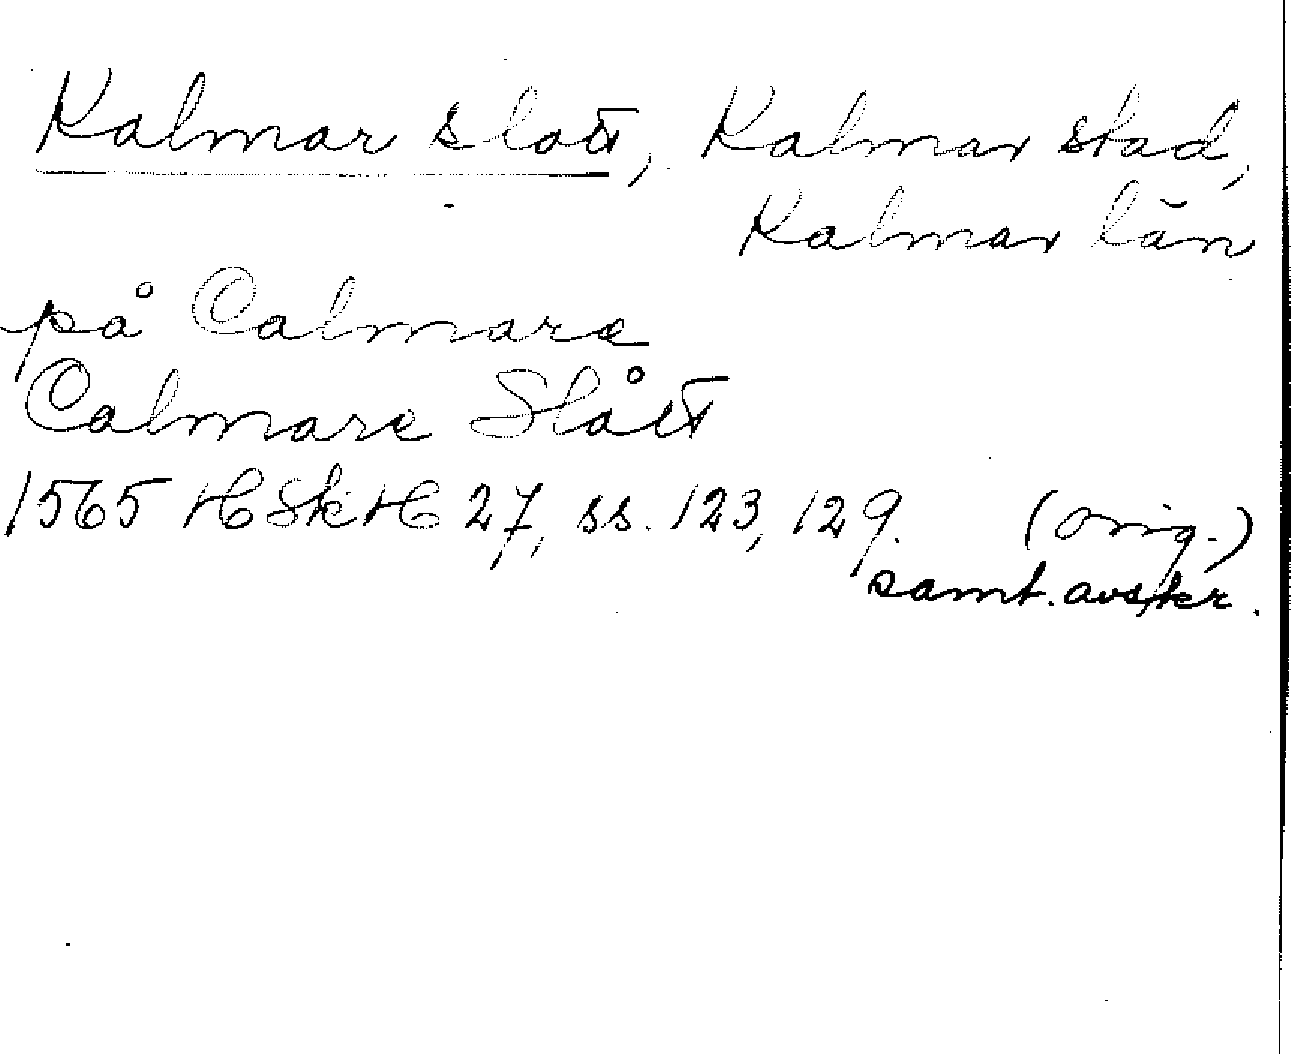 Kalmar slott, Kalmar stad,
Kalmar län
på Calmare
Calmare Slått
1565 HSkH 27, ss. 123, 129. (orig.)
samt. avskr.